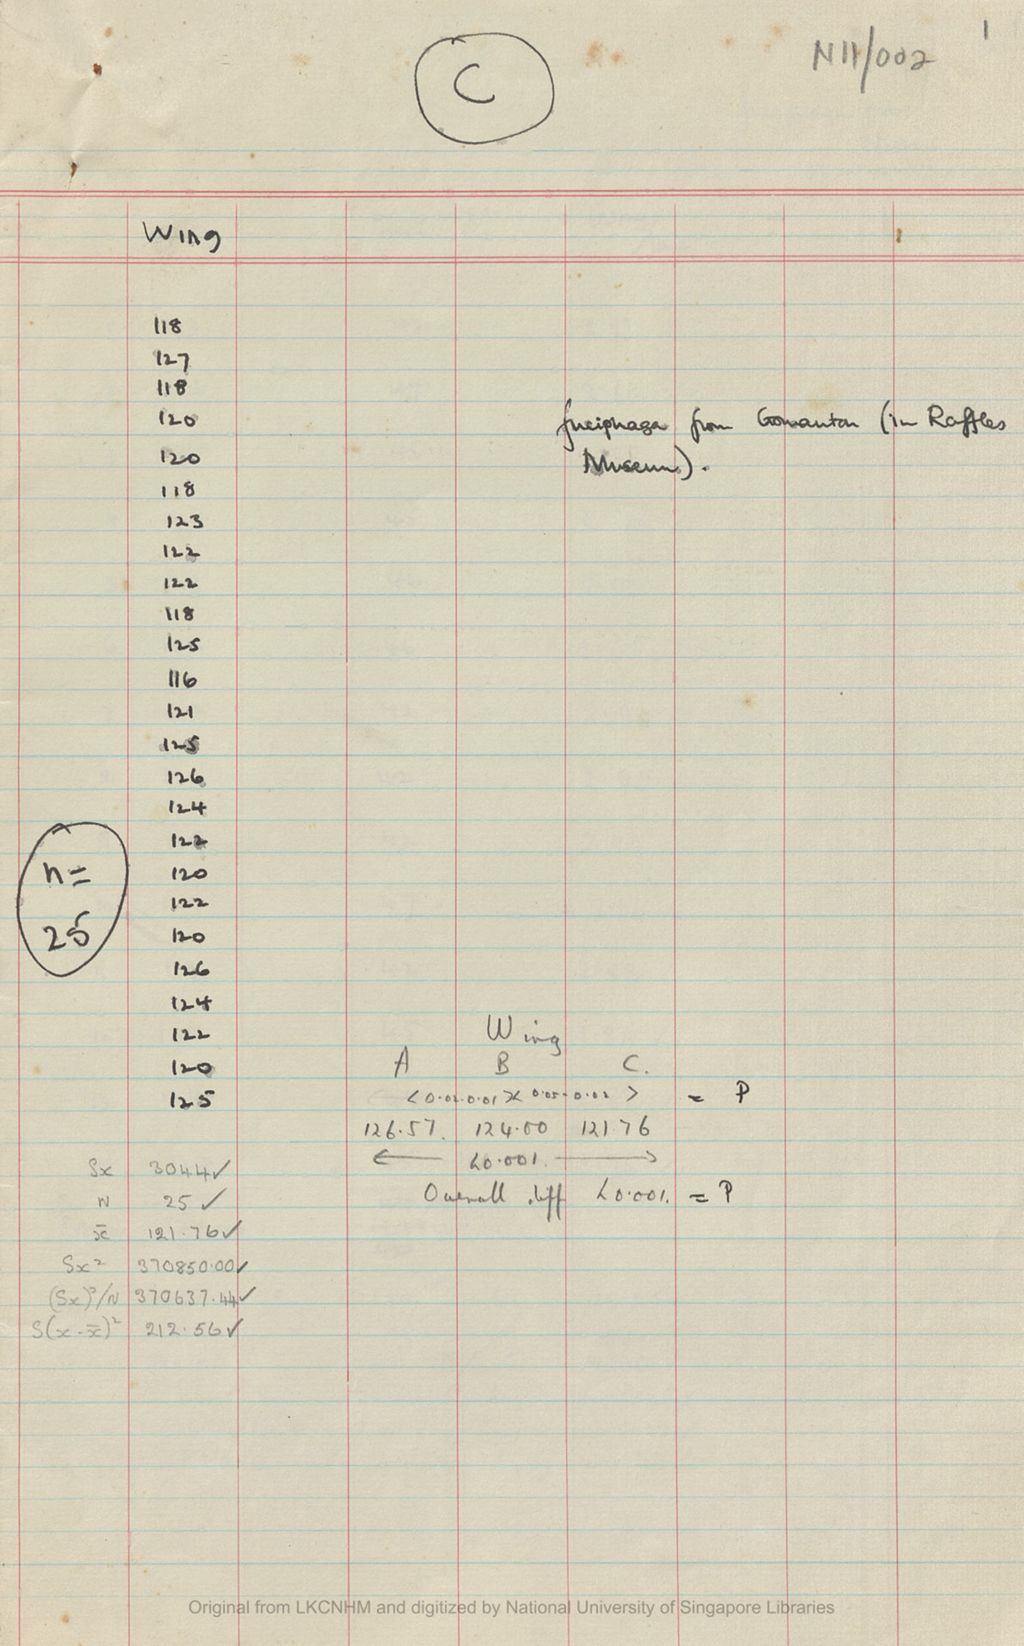 C
N11/002
1
Wing
118
127
118
120
fuciphaga from Gomanton (in Raffles
Museum).
120
118
123
122
122
118
125
116
121
125
126
124
122
n=
25
120
122
120
126
124
122
120
125
Wing
A B C.
<0.02-0.01>< 0.05-0.02 > = P
126.57. 124.00 121.76
← <0.001. →
Overall diff <0.001. = P
Sx 3044✓
N 25 ✓
x̄ 121.76✓
Sx² 370850.00✓
(Sx)²/N 370637.44✓
S(x-x̄)² 212.56✓
Original from LKCNHM and digitized by National University of Singapore Libraries